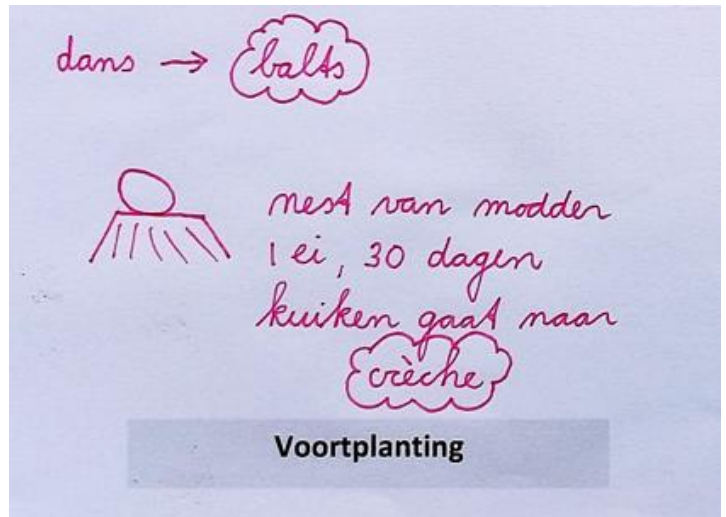 dans → balts
nest van modder
1 ei, 30 dagen
kuiken gaat naar
crèche
Voortplanting